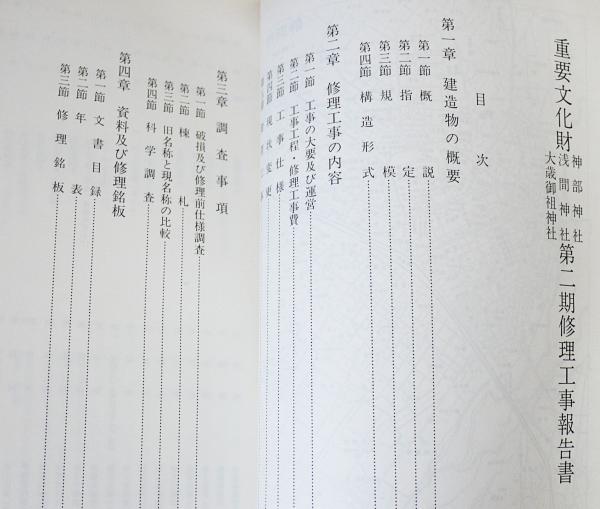 重要文化財 神部神社 浅間神社 大歳御祖神社 第二期修理工事報告書
目次
第一章 建造物の概要
第一節 概説
第二節 指定
第三節 規模
第四節 構造形式
第二章 修理工事の内容
第一節 工事の大要及び運営
第二節 工事工程 修理工事費
第三節 工事仕様
第四節 現状変更
第三章 調査事項
第一節 破損及び修理前仕様調査
第二節 棟札
第三節 旧名称と現名称の比較
第四節 科学調査
第四章 資料及び修理銘板
第一節 文書目録
第二節 年表
第三節 修理銘板